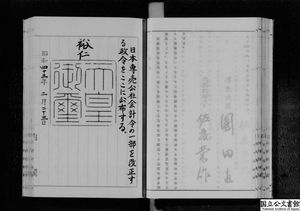 日本専売公社会計令の一部を改正す
る政令をここに公布する。
裕仁
天皇
御璽
昭和四十三年二月二十三日
園田直
佐藤栄作
国立公文書館
National Archives of Japan